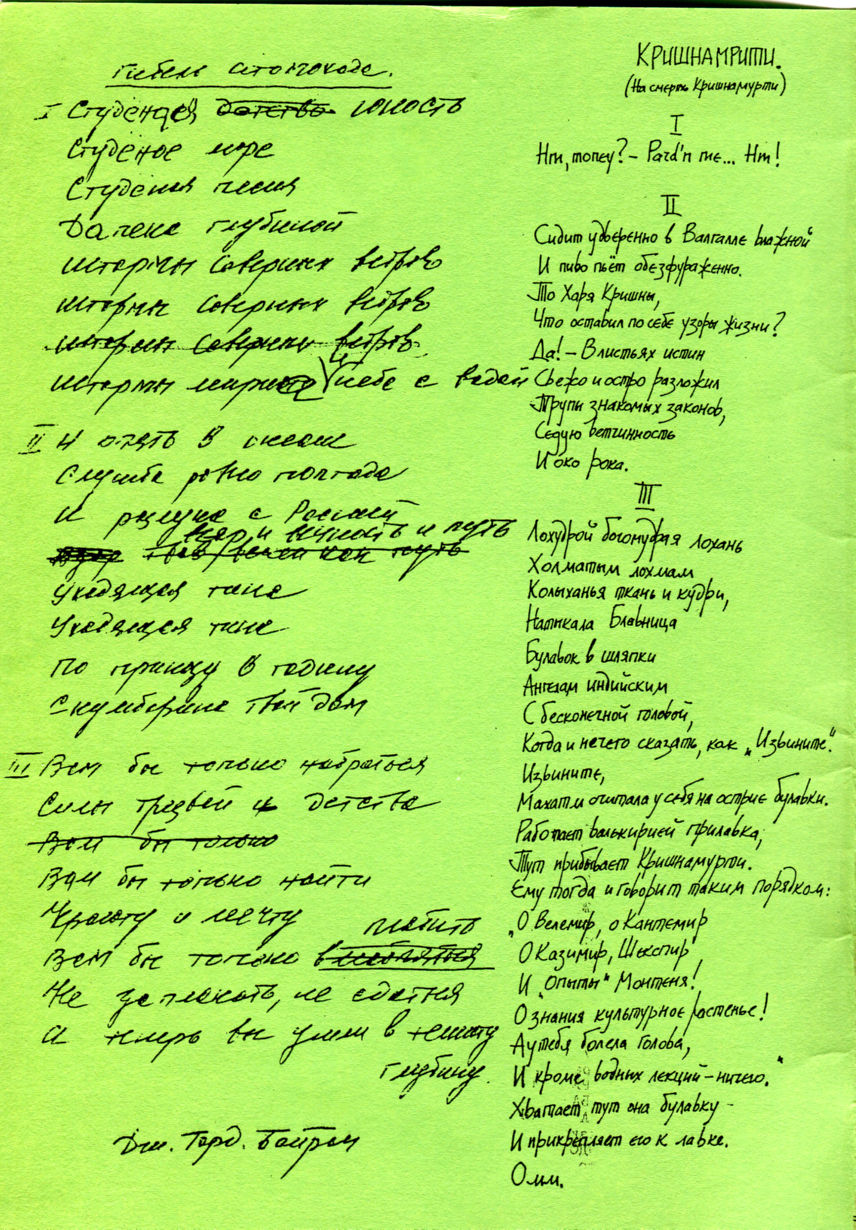 Гибель атомохода.
I Студеная детство юность
Студёное море
Студёная песня
Далека глубиной
Штормы северных ветров
Штормы северных ветров
Штормы северных ветров
Штормы небе с водой
II И опять в океан
Служба ровно полгода
И разлука с Россией
мор и вечность и путь
Уходящая тина
Уходящая тина
По приказу в година
Субмарина твой дом
III Вам бы только набраться
Силы трезвей и детства
Вам бы только
Вам бы только найти
Красоту и мечту
любить
Вам бы только
Не заплакать, не сдаться
А теперь вы ушли в темноту
глубину.
Дж. Горд. Байрон
КРИШНАМРИТИ.
(На смерть Кришнамурти)
I
Нт, топеу? – Pard'n me... Нт!
II
Сидит уверенно в Валгалле влажной
И пиво пьёт обезфураженно.
То Харя Кришны,
Что оставил по себе узоры жизни?
Да! – В листьях истин
Свежо и остро разложил
Трупы знакомых законов,
Седую ветчинность
И око рока.
III
Лохудрой богонудрая лохань
Холматым лохмам
Колыханья ткань и кудри,
Натыкала Блавница
Булавок в шляпки
Ангелам индийским
С бесконечной головой,
Когда и нечего сказать, как „Извините".
Извините,
Махатм считала у себя на острие булавки.
Работает валькирией прилавка,
Тут прибывает Кришнамурти.
Ему тогда и говорит таким порядком:
„О Велемир, о Кантемир
О Казимир, Шекспир
И „Опыты" Монтеня!
О знания культурное растенье!
А у тебя болела голова,
И кроме водных лекций – ничего."
Хватает тут она булавку –
И прикрепляет его к лавке.
Омм.